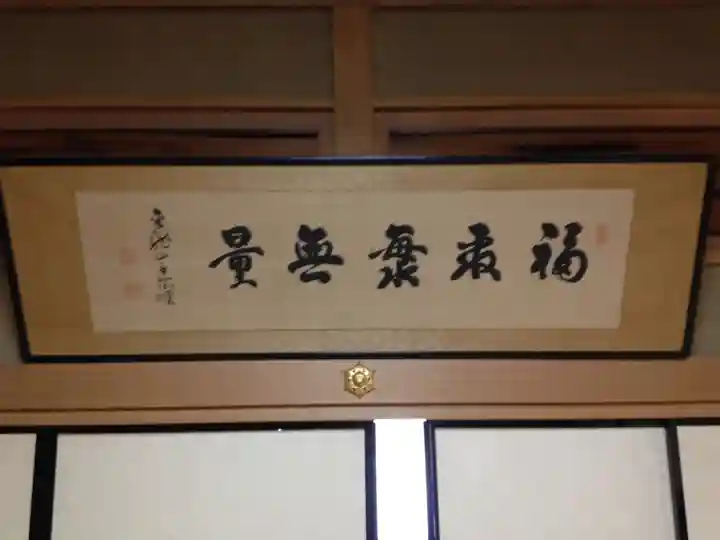 福聚海無量